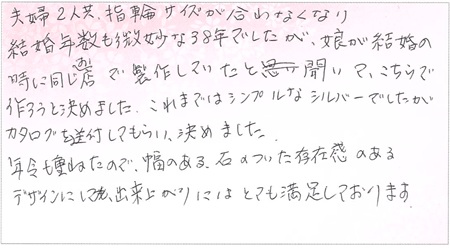 夫婦2人共、指輪サイズが合わなくなり
結婚年数も微妙な38年でしたが、娘が結婚の
時に同じ店で製作していたと聞いて、こちらで
作ろうと決めました。これまではシンプルなシルバーでしたが
カタログを送付してもらい、決めました。
年令も重ねたので、幅のある、石のついた存在感のある
デザインにして、出来上がりにはとても満足しております。